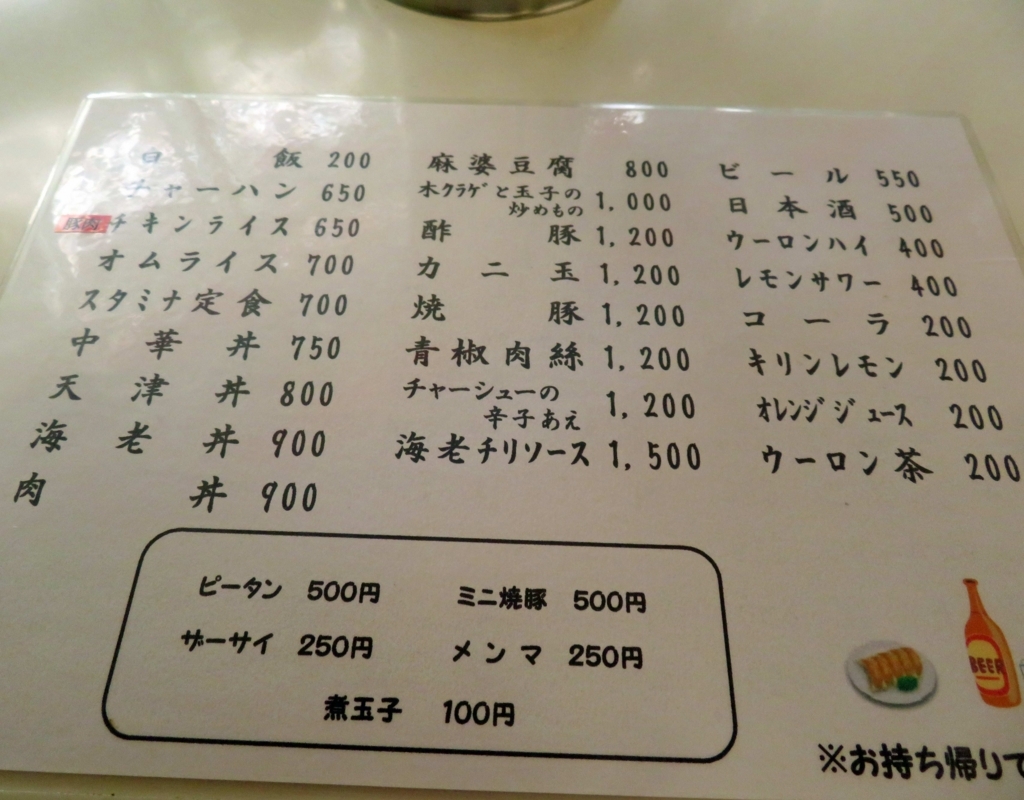 白飯 200
チャーハン 650
豚肉 チキンライス 650
オムライス 700
スタミナ定食 700
中華丼 750
天津丼 800
海老丼 900
肉丼 900
麻婆豆腐 800
木クラゲと玉子の
炒めもの 1,000
酢豚 1,200
カニ玉 1,200
焼豚 1,200
青椒肉絲 1,200
チャーシューの
辛子あえ 1,200
海老チリソース 1,500
ビール 550
日本酒 500
ウーロンハイ 400
レモンサワー 400
コーラ 200
キリンレモン 200
オレンジジュース 200
ウーロン茶 200
ピータン 500円
ミニ焼豚 500円
ザーサイ 250円
メンマ 250円
煮玉子 100円
BEER
※お持ち帰りで